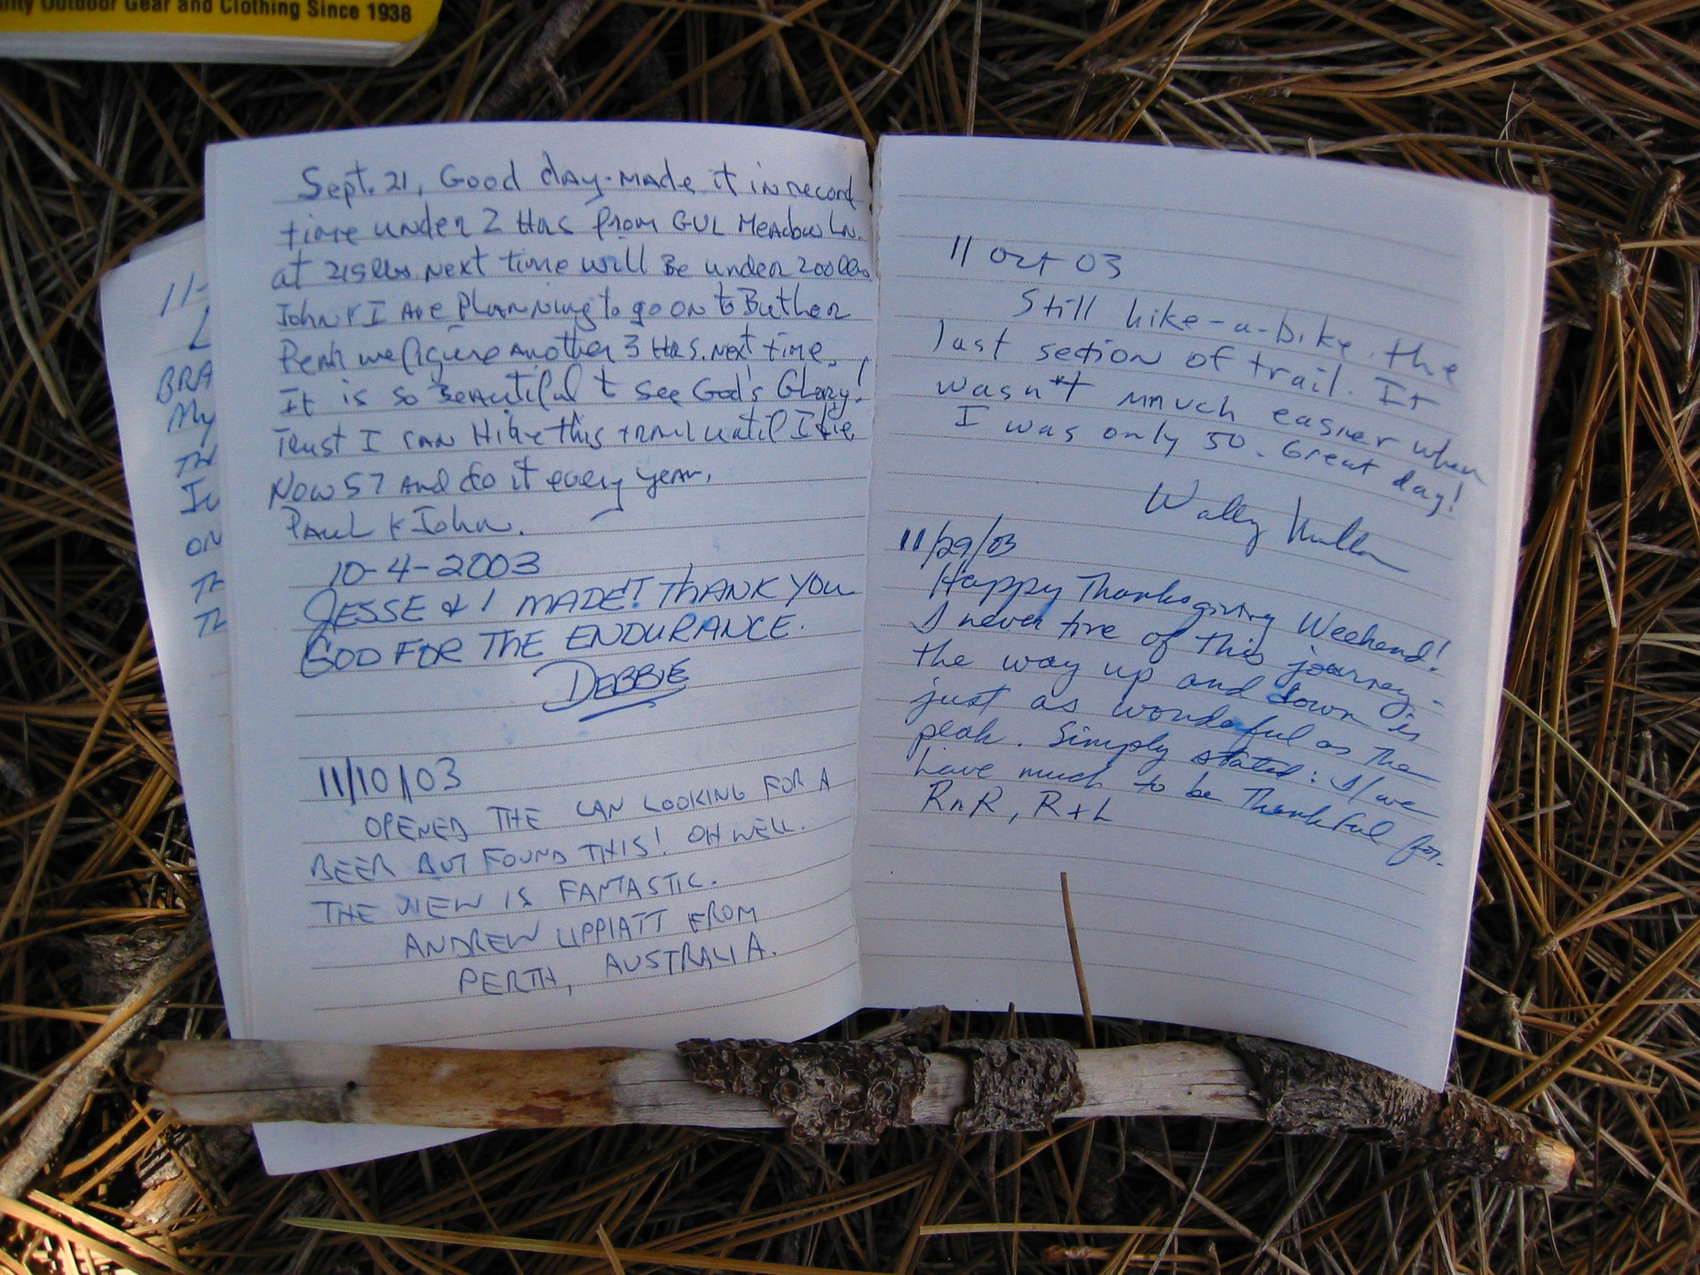 Outdoor Gear and Clothing Since 1938
Sept. 21, Good day-made it in record
time under 2 Hrs from GUL Meadow Ln.
at 215lbs. Next time will Be under 200lbs
John & I Are Planning to go on to Butler
Peak we figure Another 3 Hrs. next time.
It is so Beautiful to see God's Glory!
Trust I can Hike this trail until I die
Now 57 and do it every year.
Paul & John.
10-4-2003
JESSE & I MADE! THANK YOU
GOD FOR THE ENDURANCE.
DEBBIE
11/10/03
OPENED THE CAN LOOKING FOR A
BEER BUT FOUND THIS! OH WELL.
THE VIEW IS FANTASTIC.
ANDREW LIPPIATT FROM
PERTH, AUSTRALIA.
11 Oct 03
Still hike-a-bike the
last section of trail. It
wasn't much easier when
I was only 50. Great day!
Wally
11/29/03
Happy Thanksgiving Weekend!
I never tire of this journey-
the way up and down is
just as wonderful as the
peak. Simply stated: I/we
have much to be thankful for.
RnR, R+L
11-
L
BRA
My
TH
ON
TH
TH